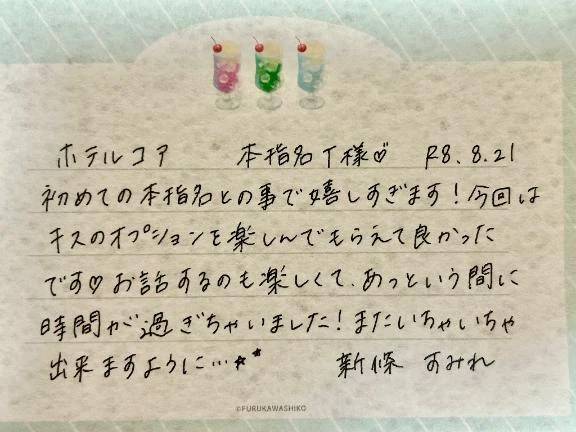 ホテルコア 本指名T様♡ R8.8.21
初めての本指名との事で嬉しすぎます！今回は
キスのオプションを楽しんでもらえて良かった
です♡お話するのも楽しくて、あっという間に
時間が過ぎちゃいました！またいちゃいちゃ
出来ますように…★★ 新條 すみれ
©FURUKAWASHIKO